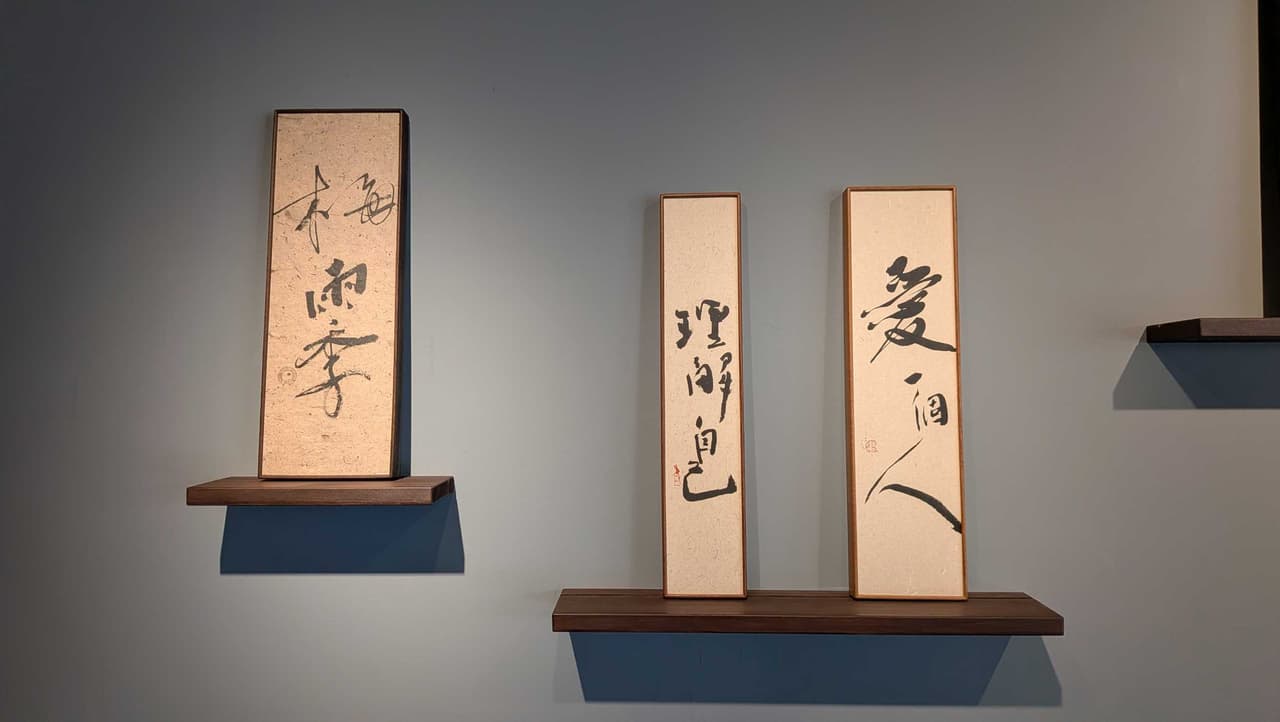 梅雨季
理解自己
愛一個人